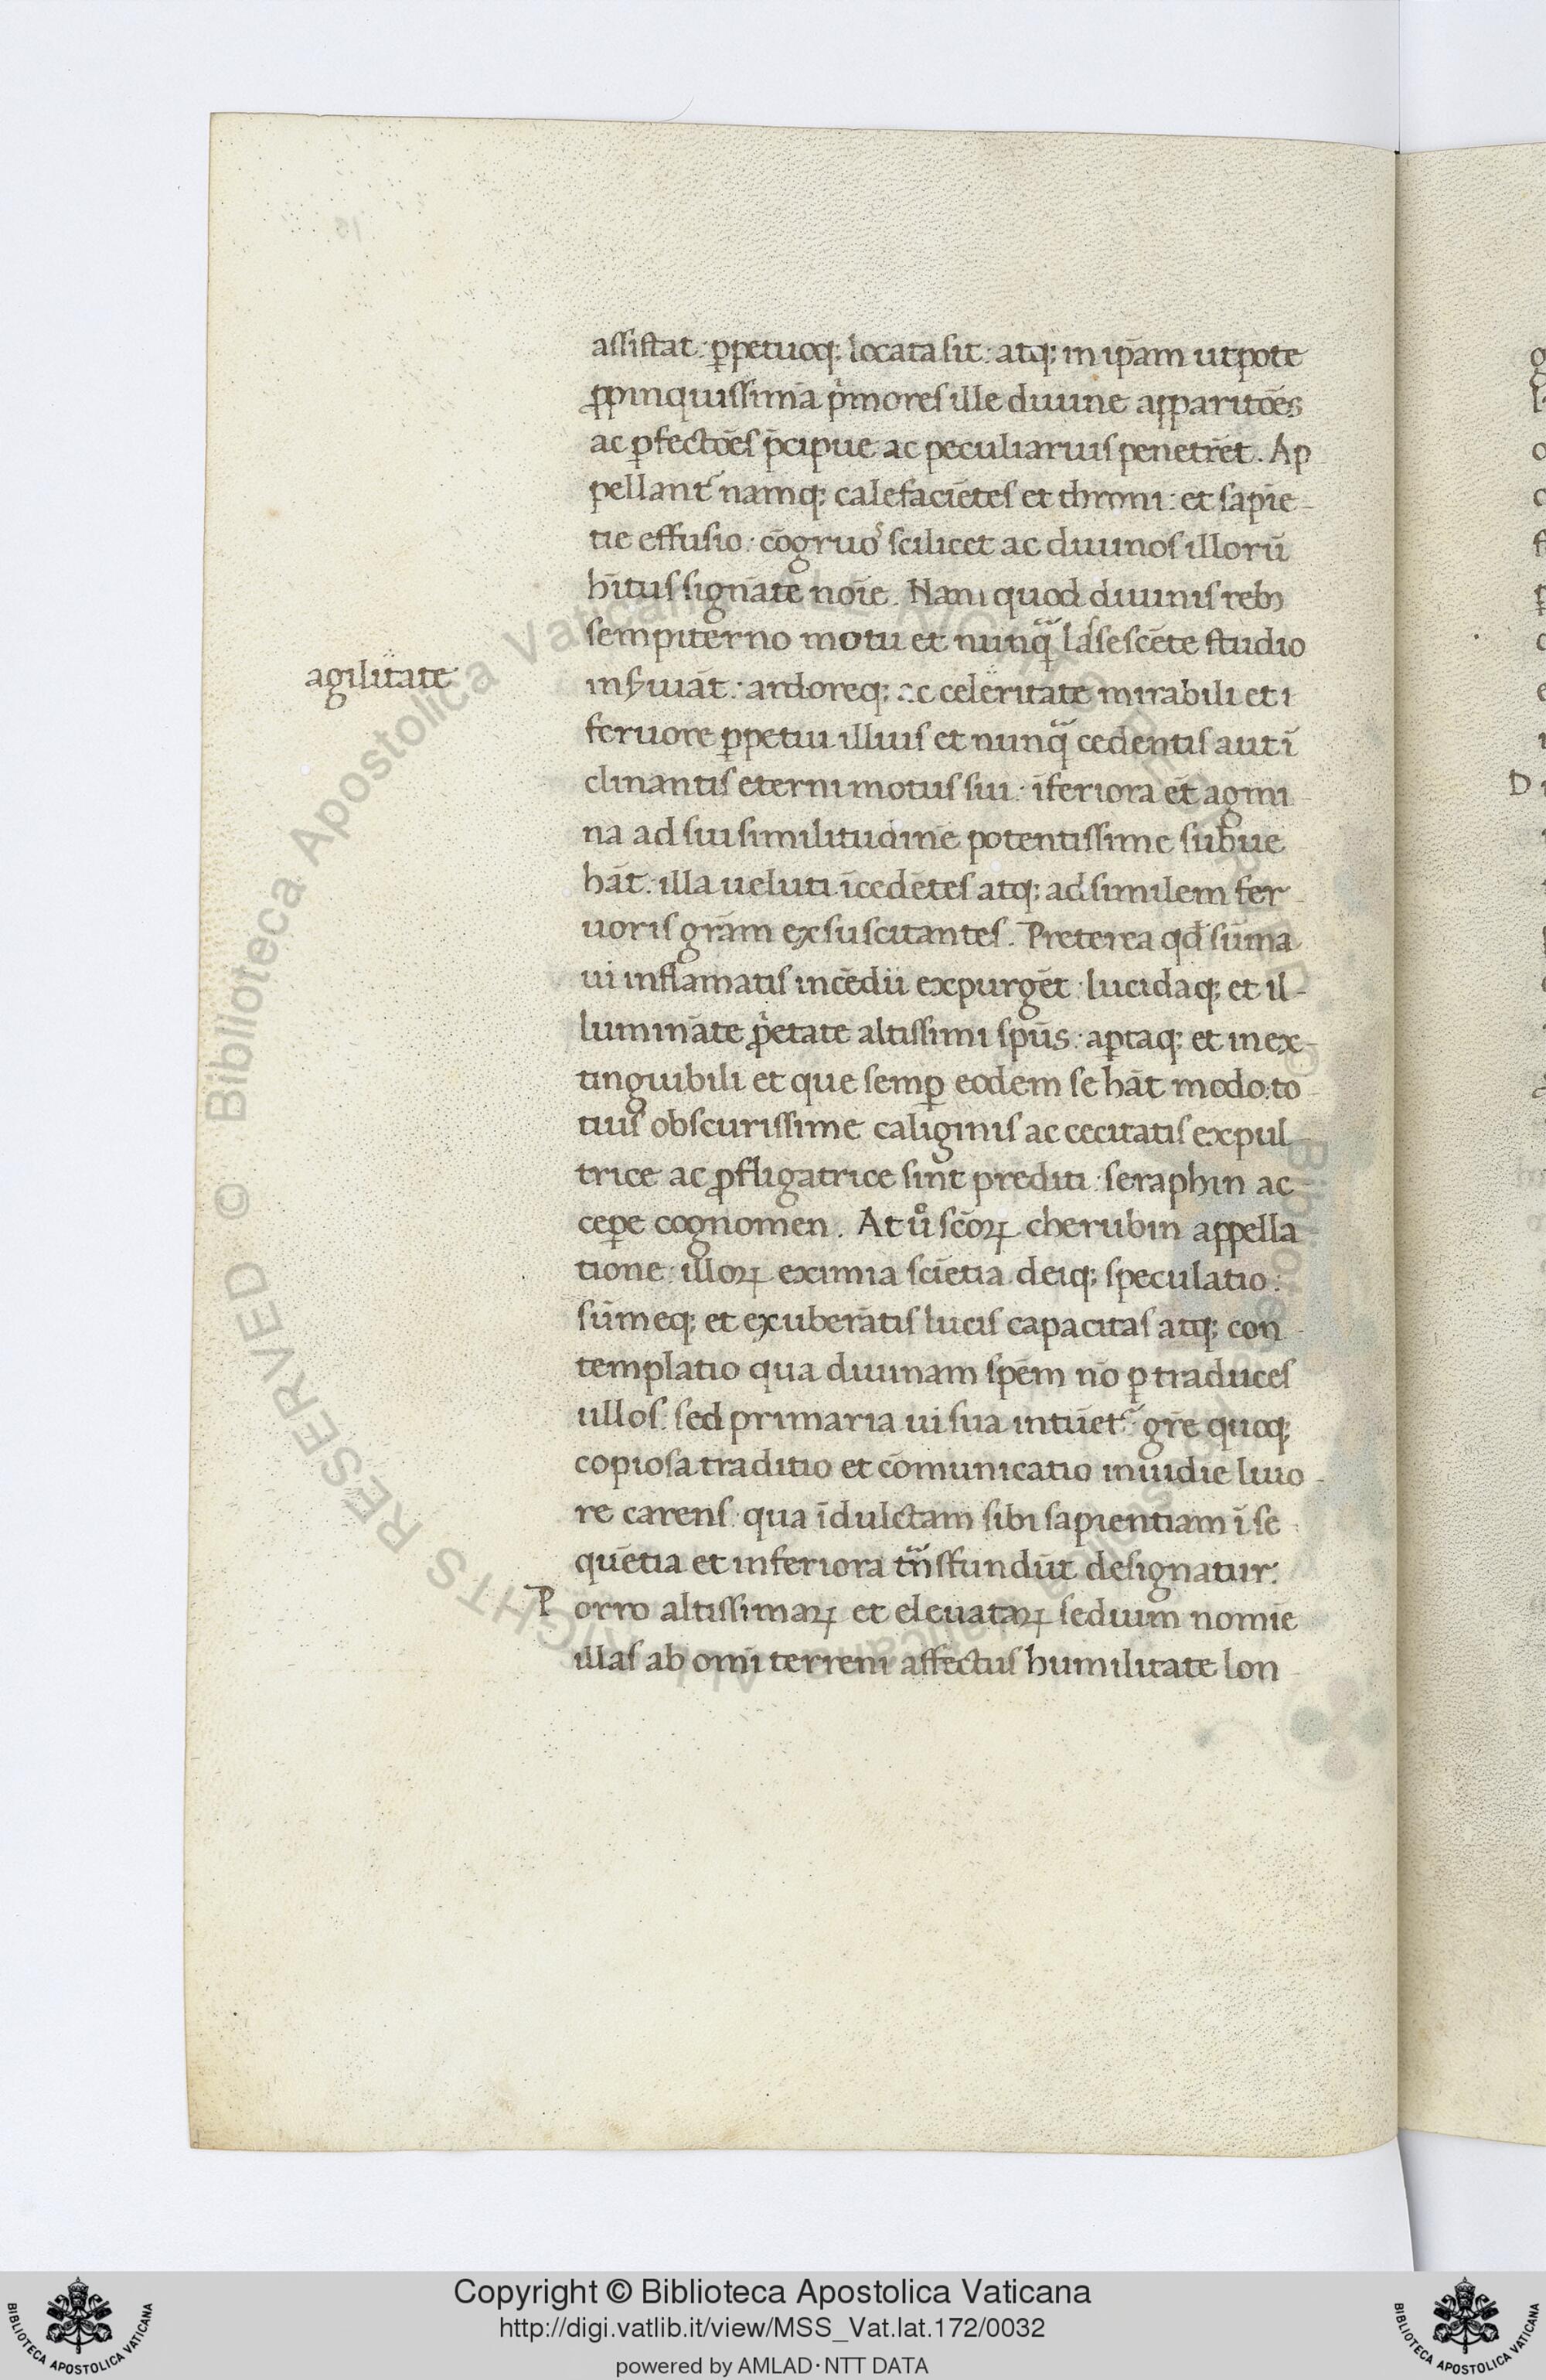 assistat: ꝑpetuoq; locata sit: atq; in ip̄am utpote
ꝓpinquissimā pͥmores ille diuine apparitōes
ac ꝑfectōes p̄cipue ac peculiarius penetrēt. Ap
pellant᷑ namq; calefaciētes et throni: et sapiē-
tie effusio: cōgruo scilicet ac diuinos illorū
hītus signāte noīe. Nam quod diuinis rebꝫ
sempiterno motu et nunqͣ̄ lasescēte studio
inſuiāt: ardoreq; ac celeritate mirabili et i
agilitate
feruore ꝑpetui illius et nunqͣ̄ cedentis aut ī
clinantis eterni motus sui: īferiora ēt agmi
na ad sui similitudinē potentissime subue
hāt: illa ueluti īcedētes atq; ad similem fer
uoris grām exsuscitantes. Preterea qd̄ sūma
ui inflamatis incēdii expurgēt: lucidaq; et il-
lumināte ꝓͥetate altissimi spūs: aꝑtaq; et inex-
tinguibili et que semꝑ eodem se hāt modo: to
tius obscurissime caliginis ac cecitatis expul
trice ac ꝓfligatrice sint prediti: seraphin ac
ceꝑe cognomen. At uͦ scōꝝ cherubin appella
tione: illoꝝ eximia sciētia deiq; speculatio:
sūmeq; et exuberātis lucis capacitas atq; con
templatio qua diuinam spēm nō ꝑ traduces
ullos: sed primaria ui sua intūet᷑: gr̄e quoq;
copiosa traditio et cōmunicatio inuidie liuo-
re carens: qua īdulctam sibi sapientiam ī se
quētia et inferiora tͣ̄nsfundūt designatur.
Porro altissimaꝝ et eleuataꝝ sedium nomīe
illas ab omī terreni affectus humilitate lon
Copyright © Biblioteca Apostolica Vaticana
http://digi.vatlib.it/view/MSS_Vat.lat.172/0032
powered by AMLAD·NTT DATA
BIBLIOTECA APOSTOLICA VATICANA
BIBLIOTECA APOSTOLICA VATICANA